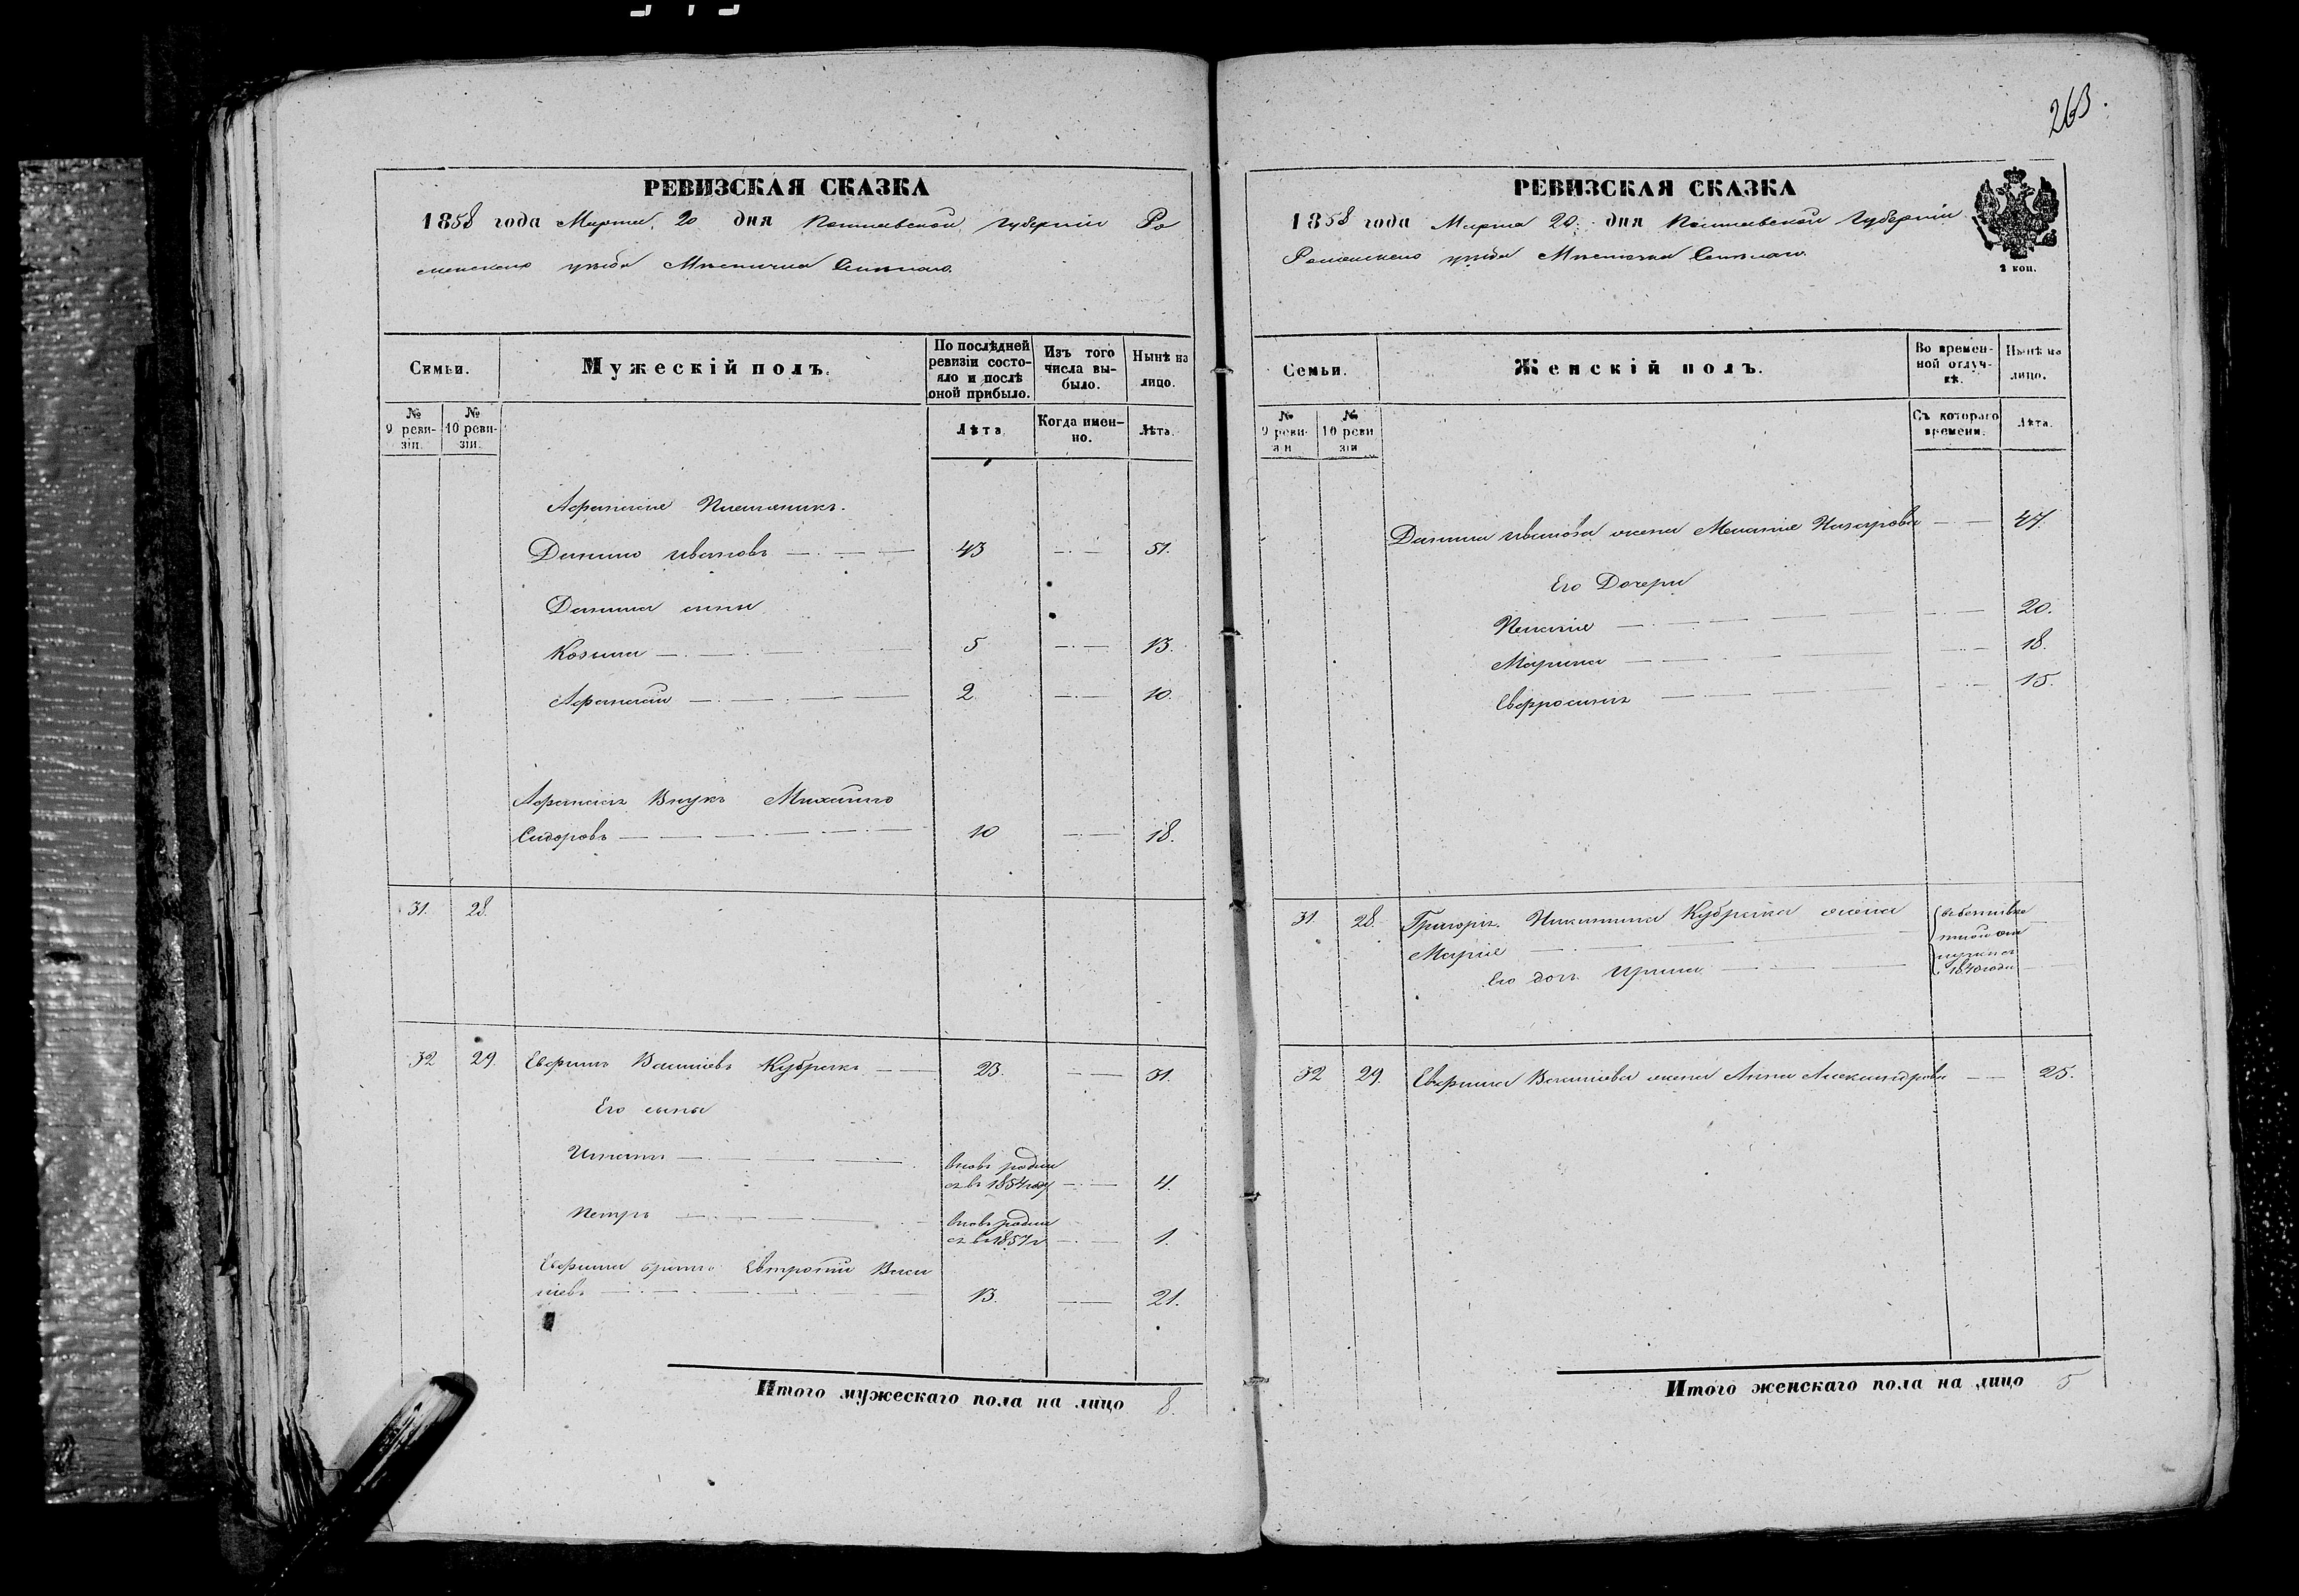 263.
РЕВИЗСКАЯ СКАЗКА
1858 года Марта 20 дня Полтавской Губерніи Ро
менскаго уѣзда Мѣстечка
Семьи.
Мужескій полъ.
По послѣдней ревизіи состо-
яло и послѣ оной прибыло.
Изъ того числа вы-
было.
Нынѣ на лицо.
№ 9 реви-
зіи.
№ 10 реви-
зіи.
Лѣта
Когда имен-
но.
Лѣта.
Афанасія Племяникъ.
Данило Ивановъ 43 51.
Данила сыны
Козьма 5 13.
Афанасій 2 10.
Афанасія Внукъ Михайло
Сидоровъ 10 18.
31. 28.
32 29. Евфимъ Василіевъ Кубракъ 23. 31.
Его сыны
Игнатъ вновь родил
ся въ 1854 году 4.
Петръ вновь родил
ся въ 1857 г 1.
Евфима братъ Евтропій Васи
ліевъ 13. 21.
Итого мужескаго пола на лицо 8.
РЕВИЗСКАЯ СКАЗКА
1858 года Марта 20 дня Полтавской Губерніи
Роменскаго уѣзда Мѣстечка
2 коп.
Семьи.
Женскій полъ.
Во времен-
ной отлуч-
кѣ.
Нынѣ на лицо.
№ 9 реви-
зіи
№ 10 реви
зіи
Съ котораго времени.
Лѣта.
Данила Иванова жена Меланія Назарова 47.
Его Дочери
Пелагія 20.
Марина 18.
Евфросинія 15.
31. 28. Григорія Никитина Кубрака жена
Марія
Его доч. Ирина
1840 года
32 29. Евфима Василіева жена Анна Александрова 25.
Итого женскаго пола на лицо 5